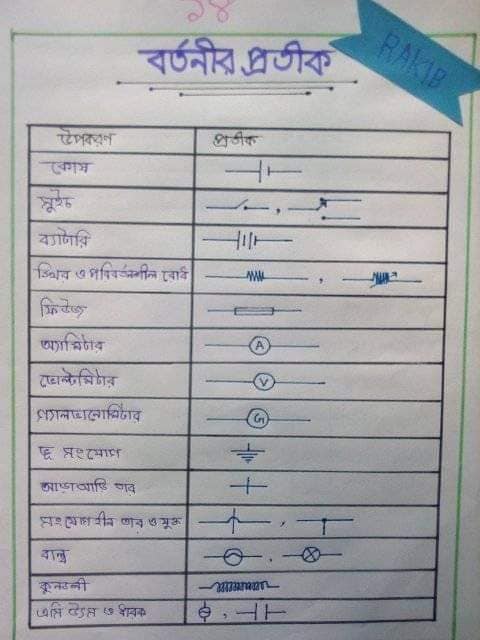 ১৪
বর্তনীর প্রতীক
RAKIB
উপকরণ প্রতীক
কোষ
সুইচ ,
ব্যাটারি
স্থির ও পরিবর্তনশীল রোধ ,
ফিউজ
অ্যামিটার A
ভোল্টমিটার V
গ্যালভানোমিটার G
ভূ সংযোগ
আড়াআড়ি তার
সংযোগহীন তার ও যুক্ত ,
বাল্ব ,
কুন্ডলী
এসি উৎস ও ধারক ,